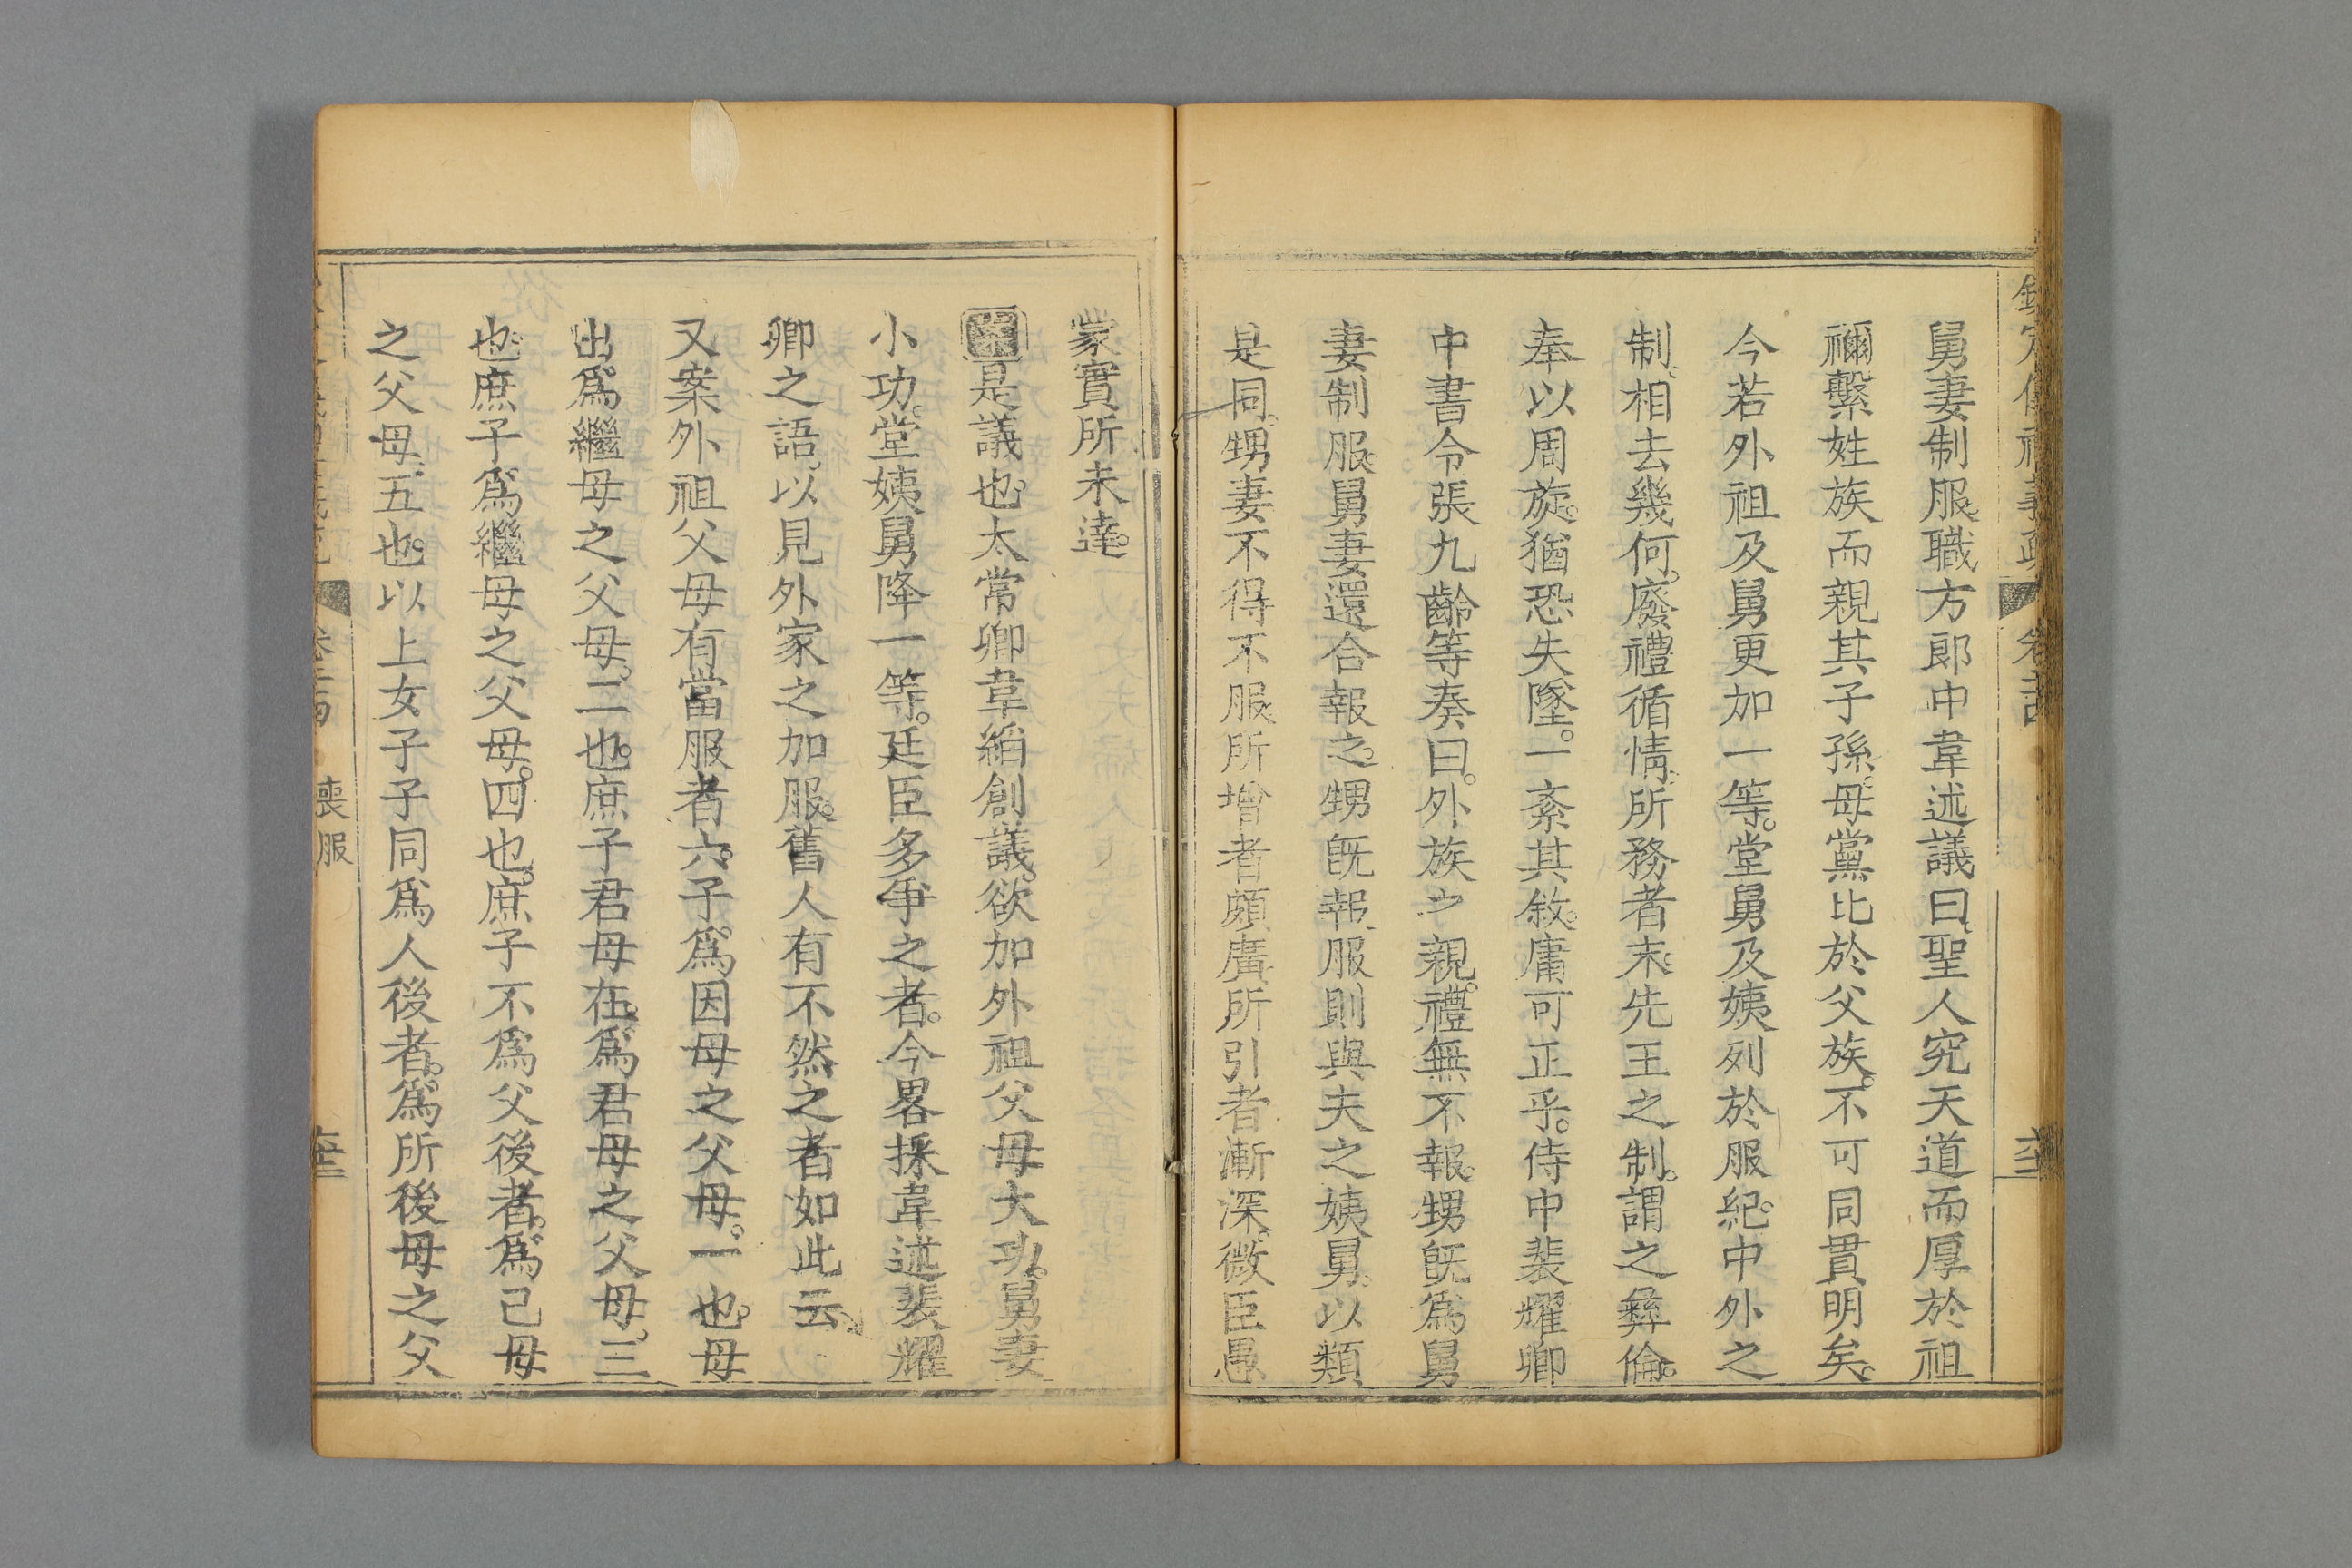 舅妻制服職方郎中韋述議曰聖人究天道而厚於祖
禰繫姓族而親其子孫母黨比於父族不可同貫明矣
今若外祖及舅更加一等堂舅及姨列於服紀中外之
制相去幾何廢禮循情所務者末先王之制謂之彝倫
奉以周旋猶恐失墜一紊其敘庸可正乎侍中裴耀卿
中書令張九齡等奏曰外族之親禮無不報甥旣爲舅
妻制服舅妻還合報之甥旣報服則與夫之姨舅以類
是同甥妻不得不服所增者頗廣所引者漸深微臣愚
蒙實所未達
案是議也太常卿韋縚創議欲加外祖父母大功舅妻
小功堂姨舅降一等廷臣多爭之者今畧採韋述裴耀
卿之語以見外家之加服舊人有不然之者如此云
又案外祖父母有當服者六子爲因母之父母一也母
出爲繼母之父母二也庶子君母在爲君母之父母三
也庶子爲繼母之父母四也庶子不爲父後者爲己母
之父母五也以上女子子同爲人後者爲所後母之父
喪服